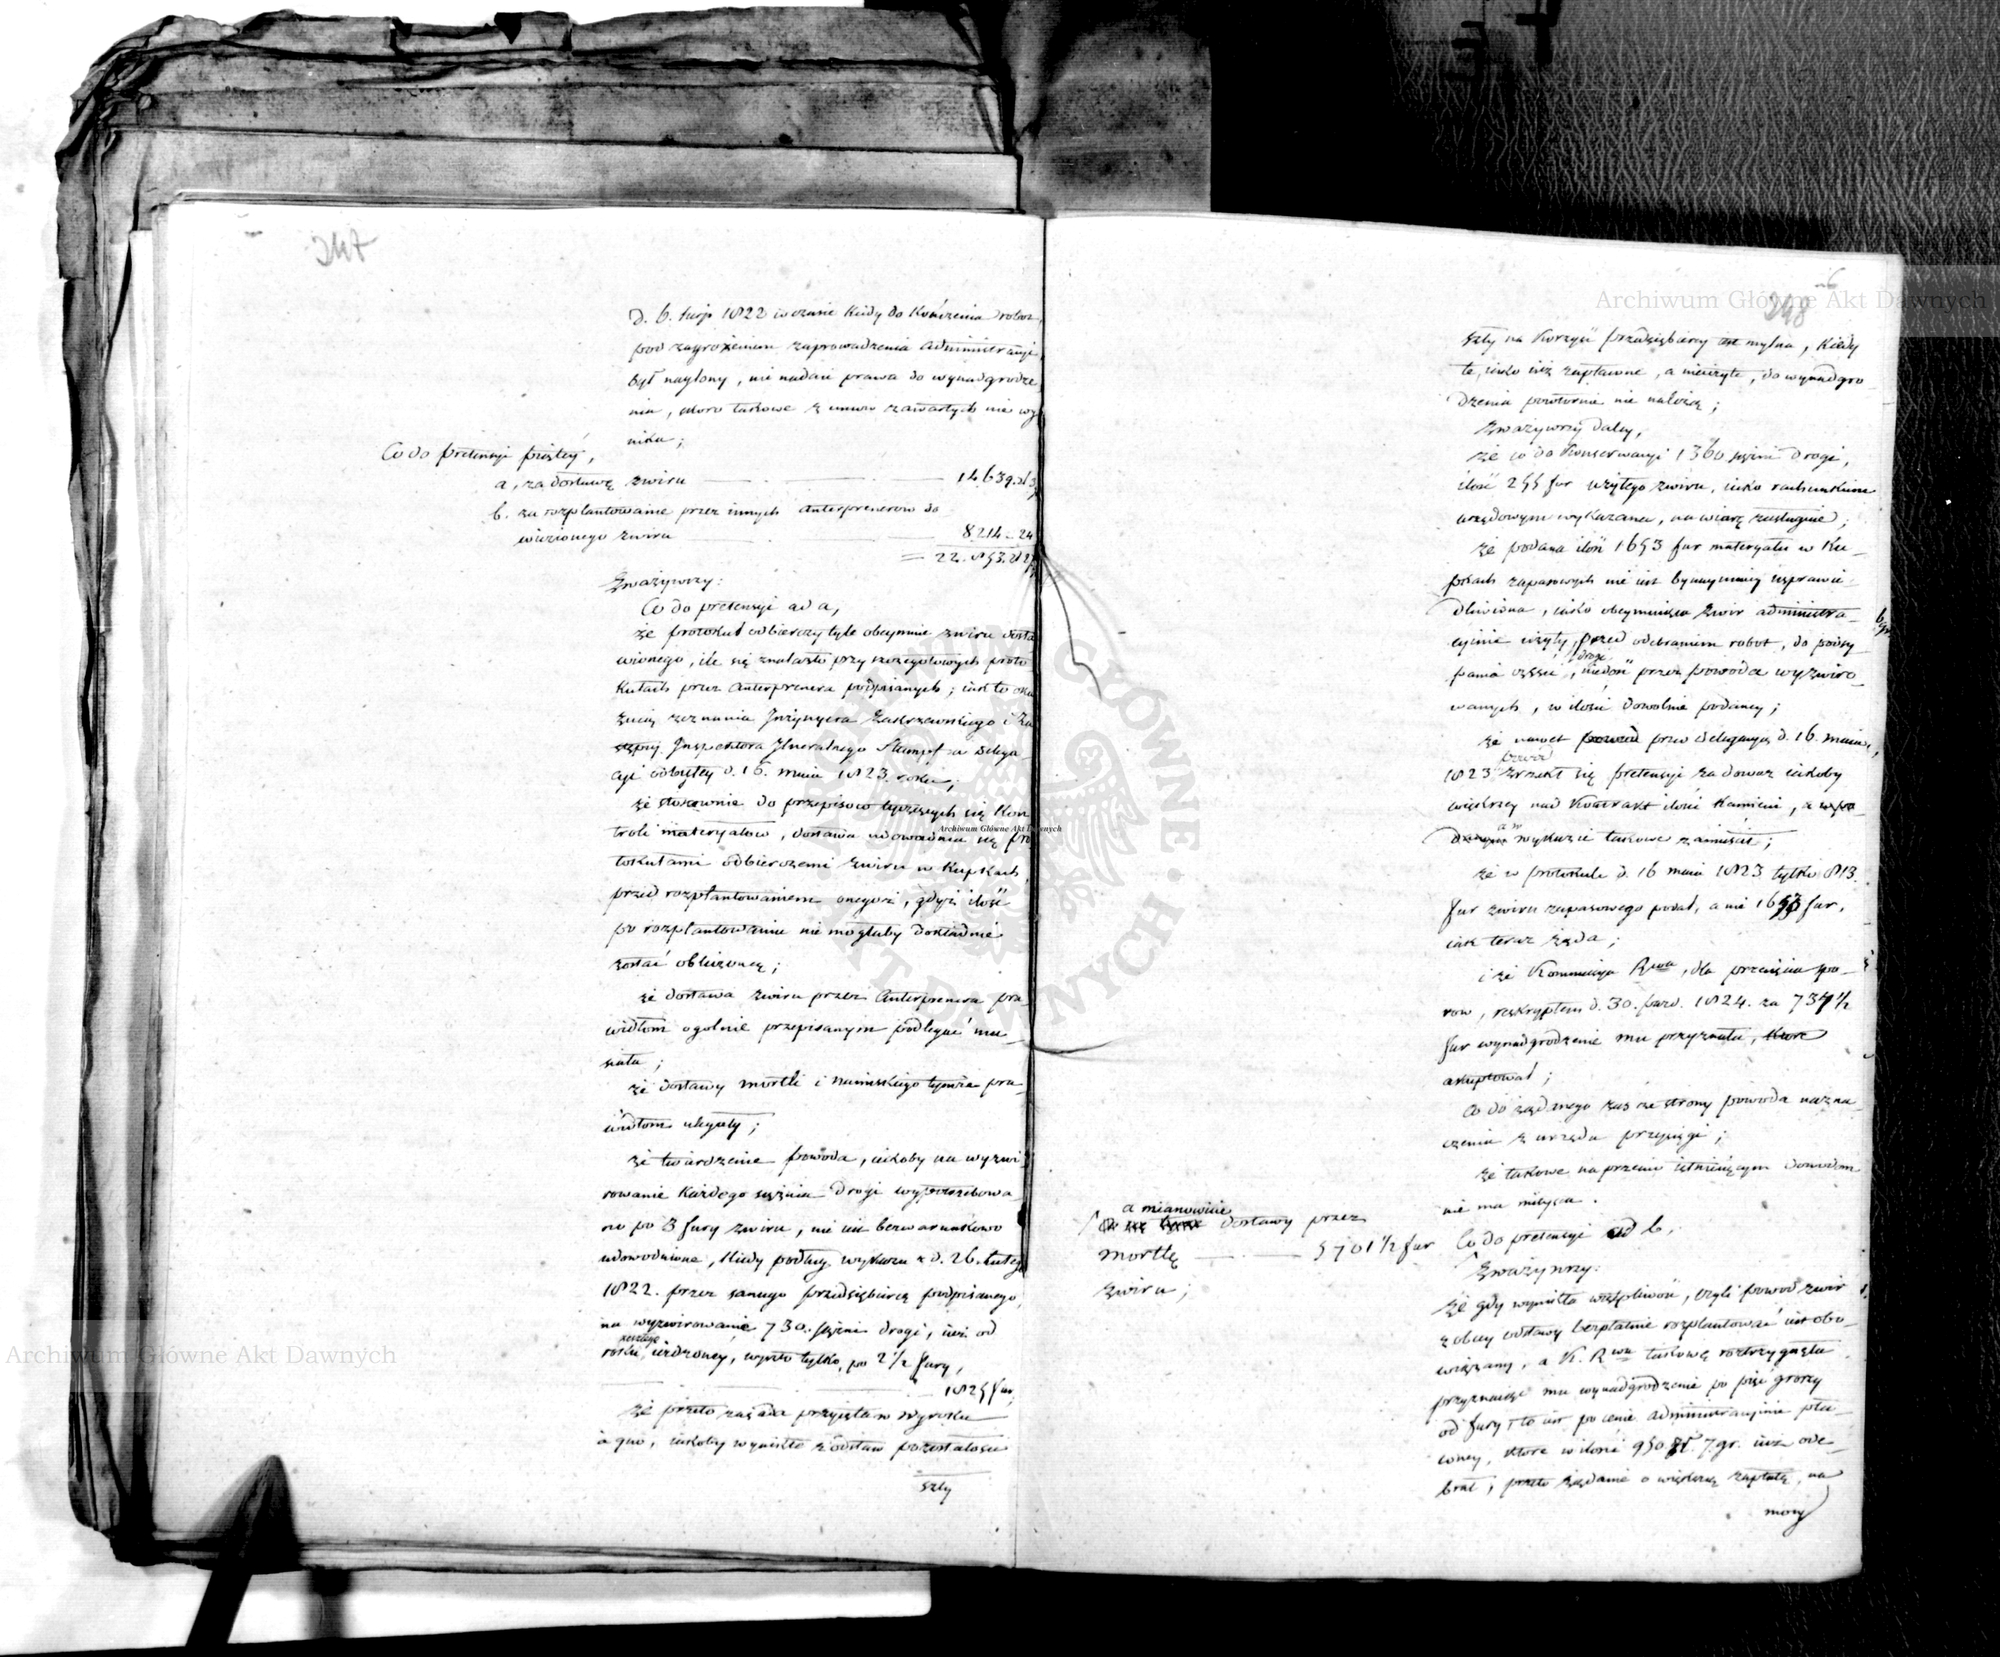 247
d. 6. sierp 1822 w czasie kiedy do kończenia robot,
pod zagrożeniem zaprowadzenia administracyi,
był naglony, nie nadaie prawa do wynadgrodze
nia, skoro takowe z umów zawartych nie wy
nika;
Co do pretensyi piątey,
a, za dostawę żwiru 14.639. zł
b. za rozplantowanie przez innych anterprenerow do
wiezionego żwiru 8214 - 24
= 22.853. zł
Zważywszy:
Co do pretensyi ad a,
że protokuł odbierczy tyle obeymuie żwiru dosta
wionego, ile się znalazło przy szczegołowych proto
kułach przez anterprenera podpisanych; iak to oka
zuią zeznania Inżyniera Zakrzewskiego i
Inspektora Jlneralnego Stumpf a delega
cyi odbytey d. 16. maia 1823. roku;
że stosownie do przepisow tyczących się kon
troli materyałow, dostawa udowadnia się pro
tokułami odbierczemi żwiru w kupkach,
przed rozplantowaniem onegoż, gdyż ilość
po rozplantowaniu nie mogłaby dokładnie
zostać obliczoną;
że dostawa żwiru przez anterprenera pra
widłom ogolnie przepisanym podlegać mu
siała;
że dostawy Mortki i Kamińskiego tymże pra
widłom uległy;
że twierdzenie powoda, iakoby na wyżwi
rowanie każdego sążnia drogi wypotrzebowa
no po 3 fury żwiru, nie iest bezwarunkowo
udowodnione, kiedy podług wykazu z d. 26. Lutego
1822. przez samego przedsiębiercę podpisanego,
na wyżwirowanie 730. sążni drogi, iuż od
roku ieżdżoney, wyszło tylko, po 2 1/2 fury,
1825 fur,
że przeto zasada przyięta w wyroku
a quo, iakoby wynikłe z odstaw pozostałości
szły
248
szły na korzyść przedsiębiercy mylna, kiedy
te, iako iuż zapłacone, a nieużyte, do wynadgro
dzenia powtornie nie należą;
Zważywszy daley,
że co do konserwacyi 1360 sążni drogi,
ilość 255 fur użytego żwiru, iako rachunkiem
urzędowym wykazana, na wiarę zasługuie;
że podana ilość 1653 fur materyału w ku_
pkach zapasowych nie iest bynaymniey usprawie_
dliwiona, iako obeymuiąca żwir administra_
cyinie użyty, przed odebraniem robot, do posy
pania części drogi, niedość przez powoda wyżwiro_
wanych, w ilości dowolnie podaney;
że nawet przed delegacyą d. 16. maia
1823 powod zrzekł się pretensyi za dowoz iakoby
większey nad kontrakt ilości kamieni, a
a w wykazie takowe zamieścił;
że w protokule d. 16 maia 1823 tylko 813.
fur żwiru zapasowego podał, a nie 1653 fur,
iak teraz żąda;
i że Kommissya Rwa, dla przecięcia spo_
row, reskryptem d. 30. paźd. 1824. za 734 1/2
fur wynadgrodzenie mu przyznała, które
akceptował;
Co do żądanego zaś ze strony powoda nazna_
czenia z urzędu przysięgi;
że takowe naprzeciw istnieiącym dowodom
nie ma mieysca.
a mianowicie
dostawy przez
Mortkę 5701 1/2 fur
żwiru;
Co do pretensyi ad b,
Zważywszy:
że gdy wynikła wątpliwość, czyli powod żwir
z obcey odstawy bezpłatnie rozplantować iest obo_
wiązany, a K. Rwa takową rozstrzygnęła
przyznaiąc mu wynadgrodzenie po pięć groszy
od fury, to iest po cenie administracyinie pła_
coney, ktore w ilości 950 zł. 7. gr. iuż ode_
brał, przeto żądanie o większą zapłatę, na
mocy